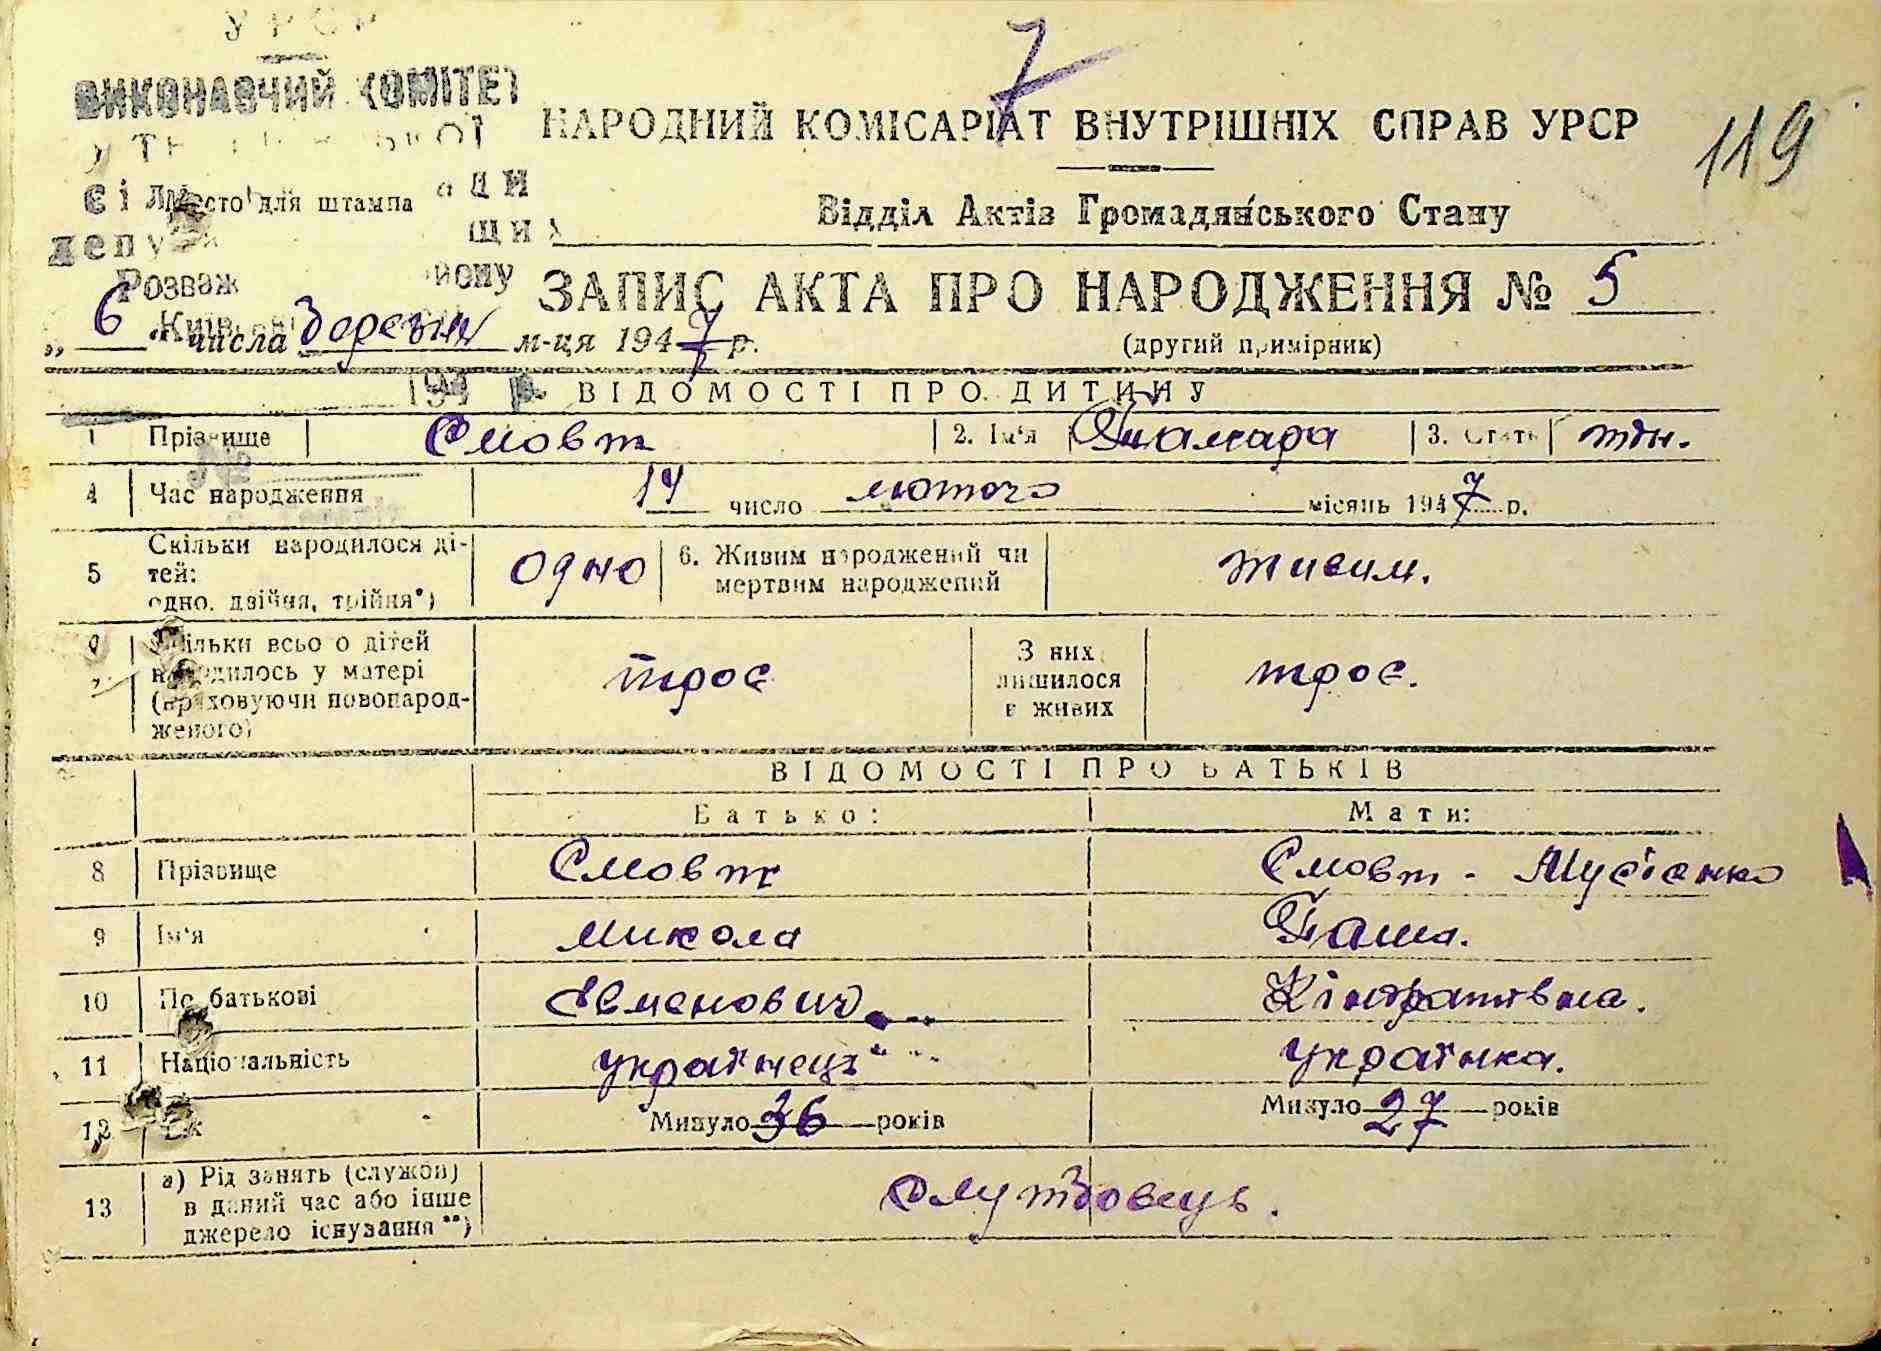 УРСР
7
ВИКОНАВЧИЙ КОМІТЕТ
НАРОДНИЙ КОМІСАРІАТ ВНУТРІШНІХ СПРАВ УРСР
119
Место для штампа
Відділ Актів Громадянського Стану
ЗАПИС АКТА ПРО НАРОДЖЕННЯ № 5
„ 6 “ числа березня м-ця 1947 р.
(другий примірник)
ВІДОМОСТІ ПРО ДИТИНУ
1 Прізвище Смовж 2. Ім'я Тамара 3. Стать жін.
4 Час народження 14 число лютого місяць 1947 р.
5 Скільки народилося ді-
тей:
одно, двійня, трійня*)
одно
6. Живим народжений чи
мертвим народжений
живим.
Скільки всього дітей
народилось у матері
(враховуючи новонарод-
женого)
троє
З них
лишилося
в живих
троє.
ВІДОМОСТІ ПРО БАТЬКІВ
Батько: Мати:
8 Прізвище Смовж Смовж - Мусієнко
9 Ім'я Микола Паша.
10 По батькові Євменович Кіндратівна.
11 Національність українець українка.
12 Вік Минуло 36 років Минуло 27 років
13 а) Рід занять (служби)
в даний час або інше
джерело існування**)
службовець.